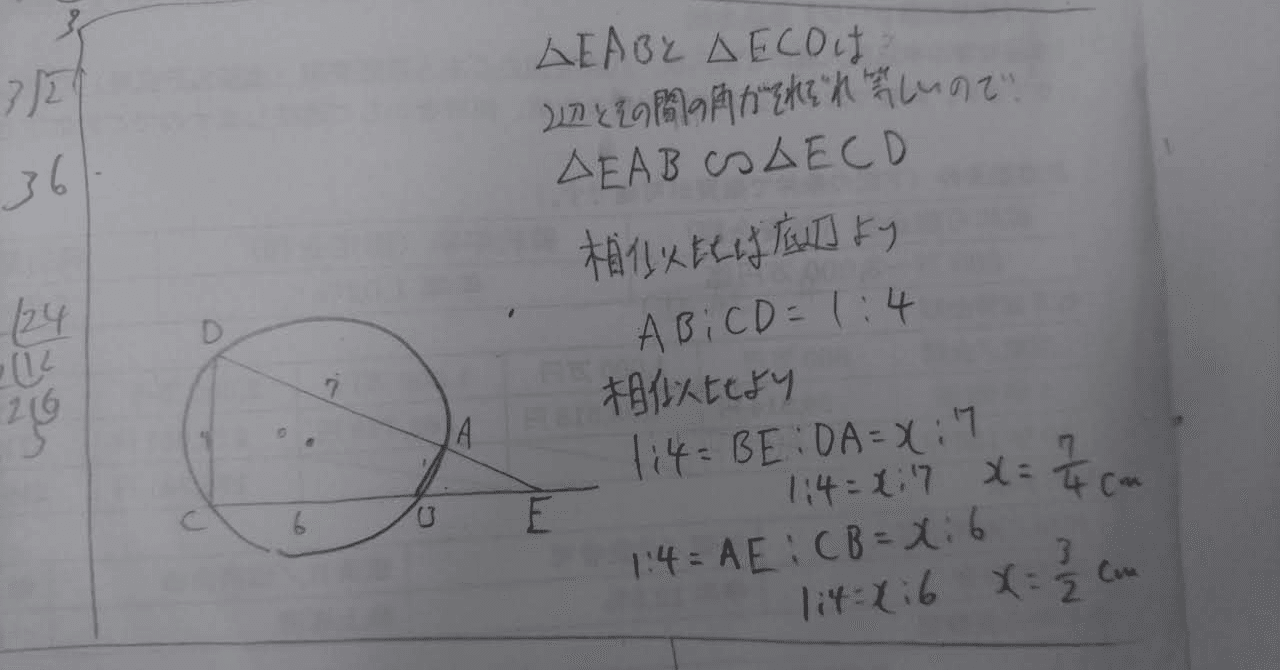 3
3√2
36
24
12
26
3
△EABと△ECDは
2辺とその間の角がそれぞれ等しいので
△EAB∽△ECD
相似比は底辺より
AB:CD=1:4
相似比より
1:4=BE:DA=x:7
1:4=x:7 x=7/4 cm
1:4=AE:CB=x:6
1:4=x:6 x=3/2 cm
D
7
A
4
O
1
C
6
B
E